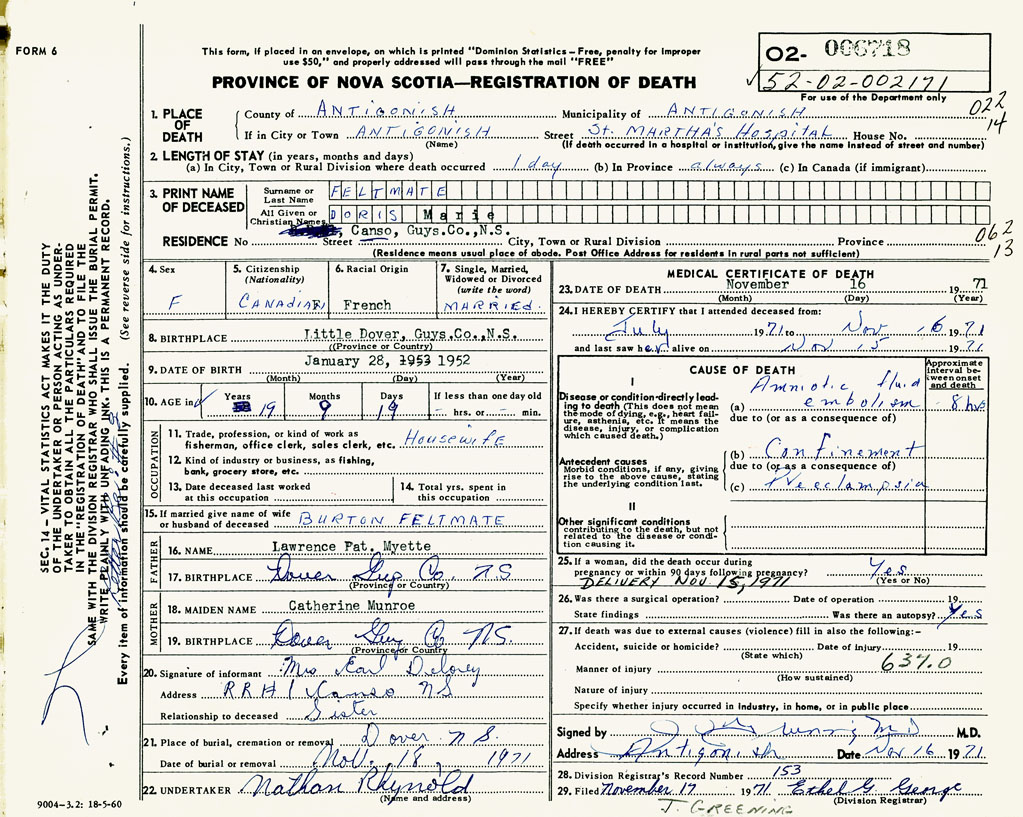 FORM 6
This form, if placed in an envelope, on which is printed "Dominion Statistics – Free, penalty for improper
use $50," and properly addressed will pass through the mail "FREE"
PROVINCE OF NOVA SCOTIA—REGISTRATION OF DEATH
02- 006718
52-02-002171
For use of the Department only
022
14
1. PLACE OF DEATH
County of ANTIGONISH Municipality of ANTIGONISH
If in City or Town ANTIGONISH Street St. MARTHA'S HOSPITAL House No.
(Name) (If death occurred in a hospital or institution, give the name instead of street and number)
2. LENGTH OF STAY (in years, months and days)
(a) In City, Town or Rural Division where death occurred 1 day (b) In Province always (c) In Canada (if immigrant)
3. PRINT NAME OF DECEASED
Surname or Last Name FELTMATE
All Given or Christian Names DORIS Marie
, Canso, Guys.Co.,N.S.
RESIDENCE No Street City, Town or Rural Division Province
062
13
(Residence means usual place of abode. Post Office Address for residents in rural parts not sufficient)
4. Sex
F
5. Citizenship
(Nationality)
CANADIAN
6. Racial Origin
French
7. Single, Married,
Widowed or Divorced
(write the word)
MARRIED.
8. BIRTHPLACE Little Dover, Guys.Co.,N.S.
(Province or Country)
9. DATE OF BIRTH January 28, 1953 1952
(Month) (Day) (Year)
10. AGE in
Years Months Days If less than one day old
19 9 19 – hrs. or – min.
OCCUPATION
11. Trade, profession, or kind of work as
fisherman, office clerk, sales clerk, etc. HOUSEWIFE
12. Kind of industry or business, as fishing,
bank, grocery store, etc.
13. Date deceased last worked
at this occupation
14. Total yrs. spent in
this occupation
15. If married give name of wife
or husband of deceased BURTON FELTMATE
FATHER
16. NAME Lawrence Pat. Myette
17. BIRTHPLACE Dover Guy Co. N.S
(Province or Country)
MOTHER
18. MAIDEN NAME Catherine Munroe
19. BIRTHPLACE Dover Guy Co N.S.
(Province or Country)
20. Signature of informant Mrs Earl Delorey
Address RR#1 Canso NS
Relationship to deceased Sister
21. Place of burial, cremation or removal Dover N S.
Date of burial or removal Nov. 18, 1971
22. UNDERTAKER Nathan Rhynold
(Name and address)
MEDICAL CERTIFICATE OF DEATH
23. DATE OF DEATH November 16 1971
(Month) (Day) (Year)
24. I HEREBY CERTIFY that I attended deceased from:
July 1971 to Nov 16 1971
and last saw her alive on Nov 15 1971
CAUSE OF DEATH
Approximate
interval be-
tween onset
and death
I
Disease or condition directly lead-
ing to death (This does not mean
the mode of dying, e.g., heart fail-
ure, asthenia, etc. It means the
disease, injury, or complication
which caused death.)
Amniotic fluid
(a) embolism 8 hrs
due to (or as a consequence of)
Antecedent causes
Morbid conditions, if any, giving
rise to the above cause, stating
the underlying condition last.
(b) Confinement
due to (or as a consequence of)
(c) Preeclampsia
II
Other significant conditions
contributing to the death, but not
related to the disease or condi-
tion causing it.
25. If a woman, did the death occur during
pregnancy or within 90 days following pregnancy? Yes
DELIVERY NOV 15, 1971 (Yes or No)
26. Was there a surgical operation? Date of operation 19
State findings Was there an autopsy? Yes
27. If death was due to external causes (violence) fill in also the following:–
Accident, suicide or homicide? Date of injury 19
(State which)
Manner of injury 637.0
(How sustained)
Nature of injury
Specify whether injury occurred in industry, in home, or in public place
Signed by M.D. M.D.
Address Antigonish Date Nov 16 1971.
28. Division Registrar's Record Number 153
29. Filed November 17 1971 Ethel G George
(Division Registrar)
J. GREENING
9004–3.2: 18-5-60
SEC. 14 – VITAL STATISTICS ACT MAKES IT THE DUTY
OF THE UNDERTAKER OR PERSON ACTING AS UNDER-
TAKER TO OBTAIN ALL THE PARTICULARS REQUIRED
IN THE "REGISTRATION OF DEATH" AND TO FILE THE
SAME WITH THE DIVISION REGISTRAR WHO SHALL ISSUE THE BURIAL PERMIT.
WRITE PLAINLY WITH UNFADING INK. THIS IS A PERMANENT RECORD.
Every item of information should be carefully supplied. (See reverse side for instructions.)